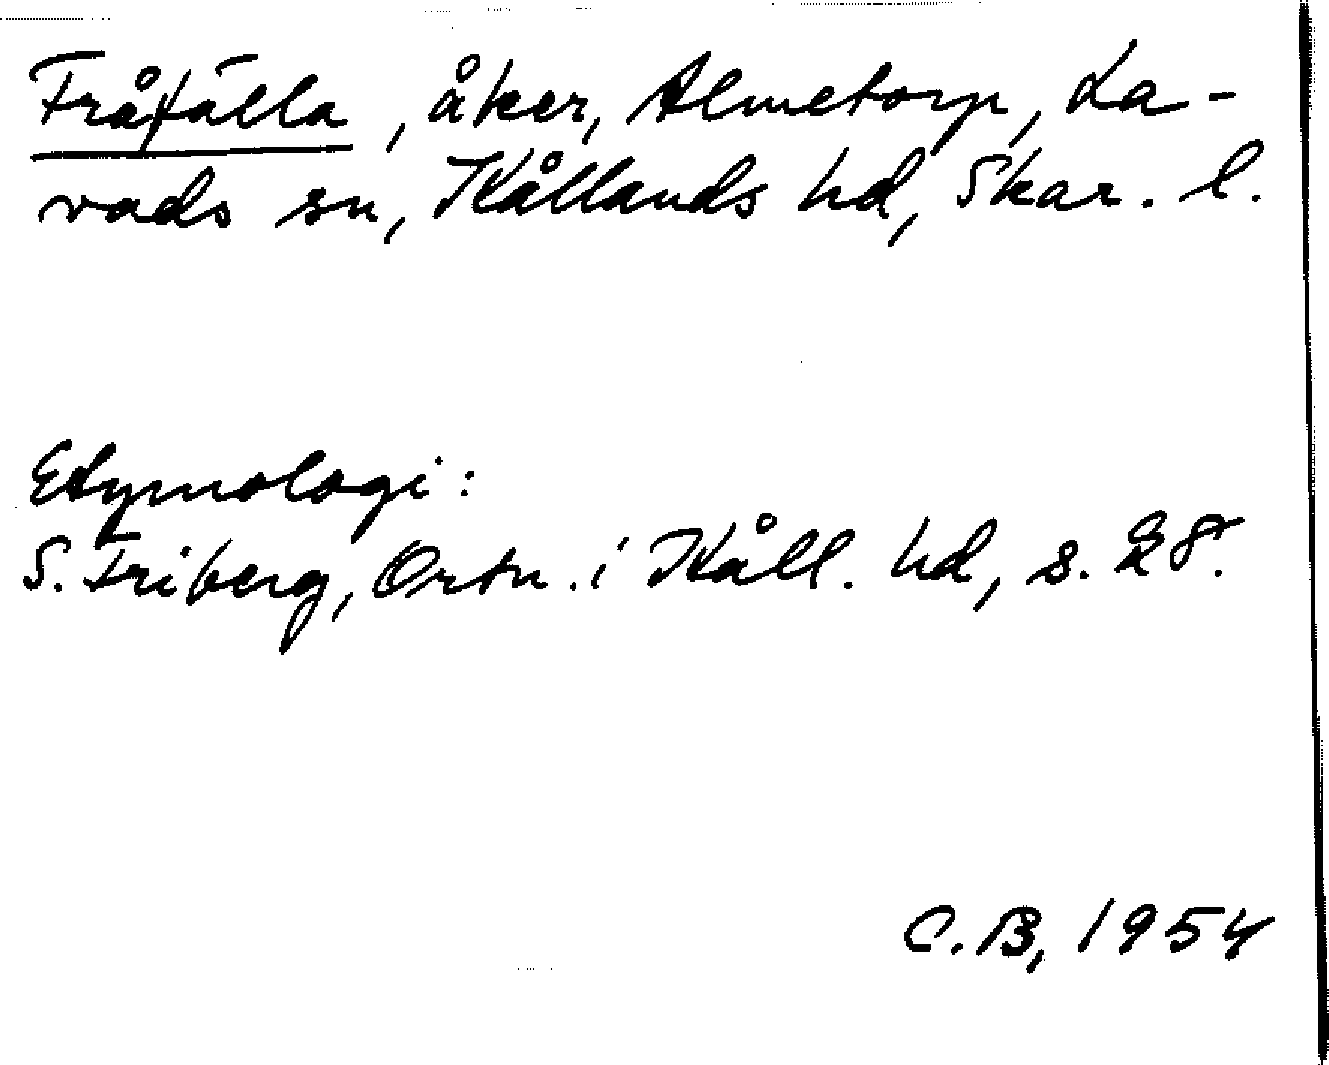 Fråfälla, åker, Almetorp, La-
vads sn, Kållands hd, Skar. l.
Etymologi:
S. Friberg, Ortn. i Kåll. hd, s. 28.
C.B, 1954